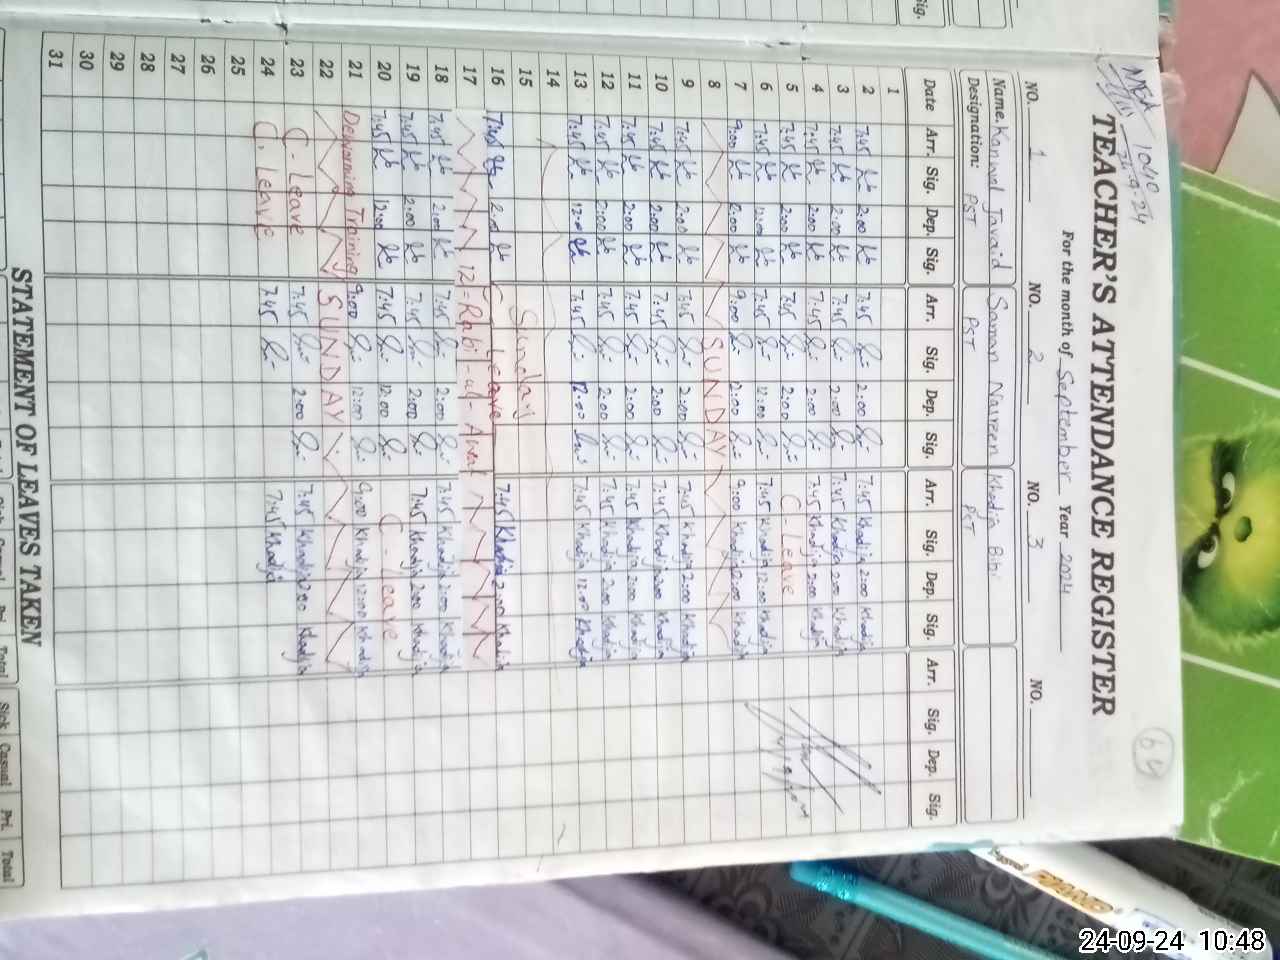 64
TEACHER'S ATTENDANCE REGISTER
For the month of September Year 2024
NO. 1 NO. 2 NO. 3 NO.
Name. Kanwal Javaid Saman Nasreen Khadija Bibi
Designation: PST PST PST
Date Arr. Sig. Dep. Sig. Arr. Sig. Dep. Sig. Arr. Sig. Dep. Sig. Arr. Sig. Dep. Sig.
1
2 7:45 2:00 7:45 2:00 7:45 Khadija 2:00 Khadija
3 7:45 2:00 7:45 2:00 7:45 Khadija 2:00 Khadija
4 7:45 2:00 7:45 2:00 7:45 Khadija 2:00 Khadija
5 7:45 2:00 7:45 2:00 C-Leave
6 7:45 12:00 7:45 12:00 7:45 Khadija 12:00 Khadija
7 9:00 2:00 9:00 2:00 9:00 Khadija 2:00 Khadija
8 SUNDAY
9 7:45 2:00 7:45 2:00 7:45 Khadija 2:00 Khadija
10 7:45 2:00 7:45 2:00 7:45 Khadija 2:00 Khadija
11 7:45 2:00 7:45 2:00 7:45 Khadija 2:00 Khadija
12 7:45 2:00 7:45 2:00 7:45 Khadija 2:00 Khadija
13 7:45 12:00 7:45 12:00 7:45 Khadija 12:00 Khadija
14
15 Sunday
16 7:45 2:00 C Leave 7:45 Khadija 2:00 Khadija
17 12 = Rabi-ul-Awal
18 7:45 2:00 7:45 2:00 7:45 Khadija 2:00 Khadija
19 7:45 2:00 7:45 2:00 7:45 Khadija 2:00 Khadija
20 7:45 12:00 7:45 12:00 C-Leave
21 Deworming Training 9:00 12:00 9:00 Khadija 12:00 Khadija
22 SUNDAY
23 C-Leave 7:45 2:00 7:45 Khadija 2:00 Khadija
24 C. Leave 7:45 7:45 Khadija
25
26
27
28
29
30
31
STATEMENT OF LEAVES TAKEN
Total Sick Casual Pri. Total
Sig.
24-09-24 10:48